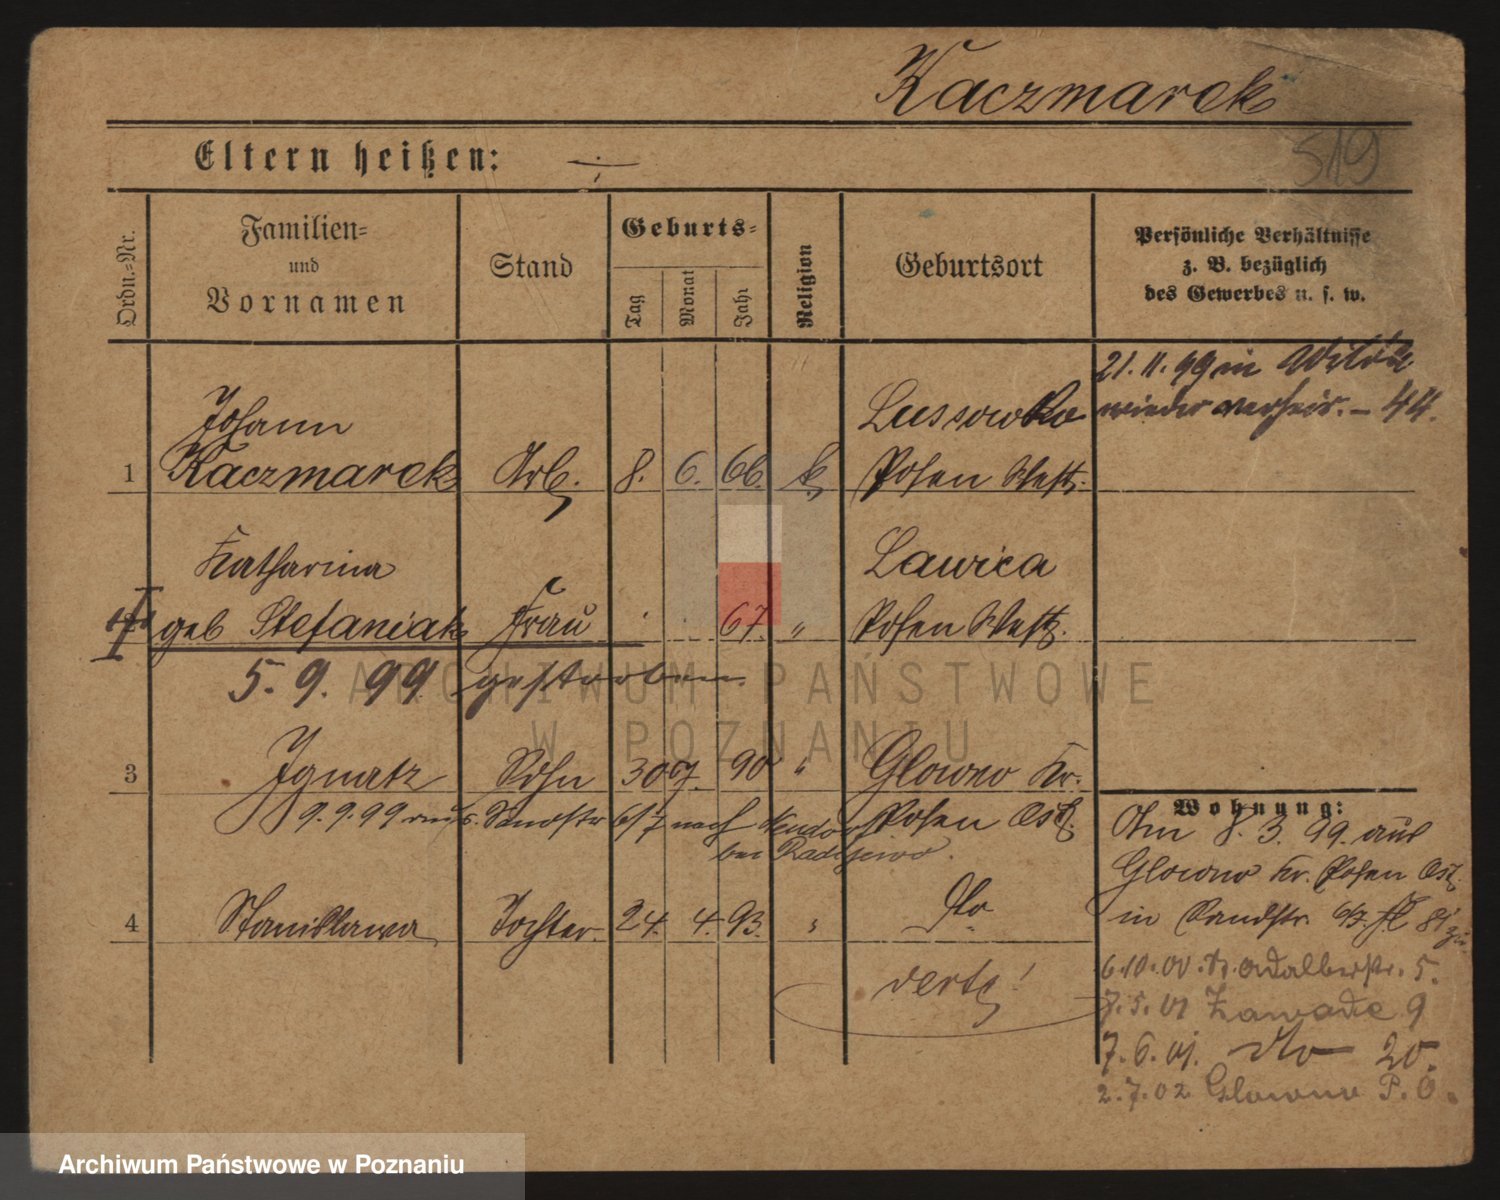 Kaczmarek
519
Eltern heißen: ÷
Ordn.=Nr.
Familien=
und
Vornamen
Stand
Geburts=
Tag
Monat
Jahr
Religion
Geburtsort
Persönliche Verhältnisse
z. B. bezüglich
des Gewerbes u. s. w.
21. 11. 99 in
wieder verheir. – 44.
Johann
Lussowko
1 Kaczmarek Arb. 8. 6. 66. k. Posen West.
Katharina
Lawica
geb Stefaniak Frau 67. " Posen West.
5. 9. 99 gestorben.
3 Ignatz Sohn 30 7. 90 " Glowno Kr.
9. 9. 99 Sandstr 6/7 nach Posen Ost.
bei Radojewo.
4 Stanislawa Tochter. 24. 4. 93. " dto
verte!
Wohnung:
Am 8. 3. 99. aus
Glowno Kr. Posen Ost.
in Sandstr. 6/7.
6.10.00. Adalbertstr. 5.
7. 5. 01 Zawade 9
7. 6. 01. dto 20.
2. 7. 02 Glowno P. O.
ARCHIWUM PAŃSTWOWE
W POZNANIU
Archiwum Państwowe w Poznaniu